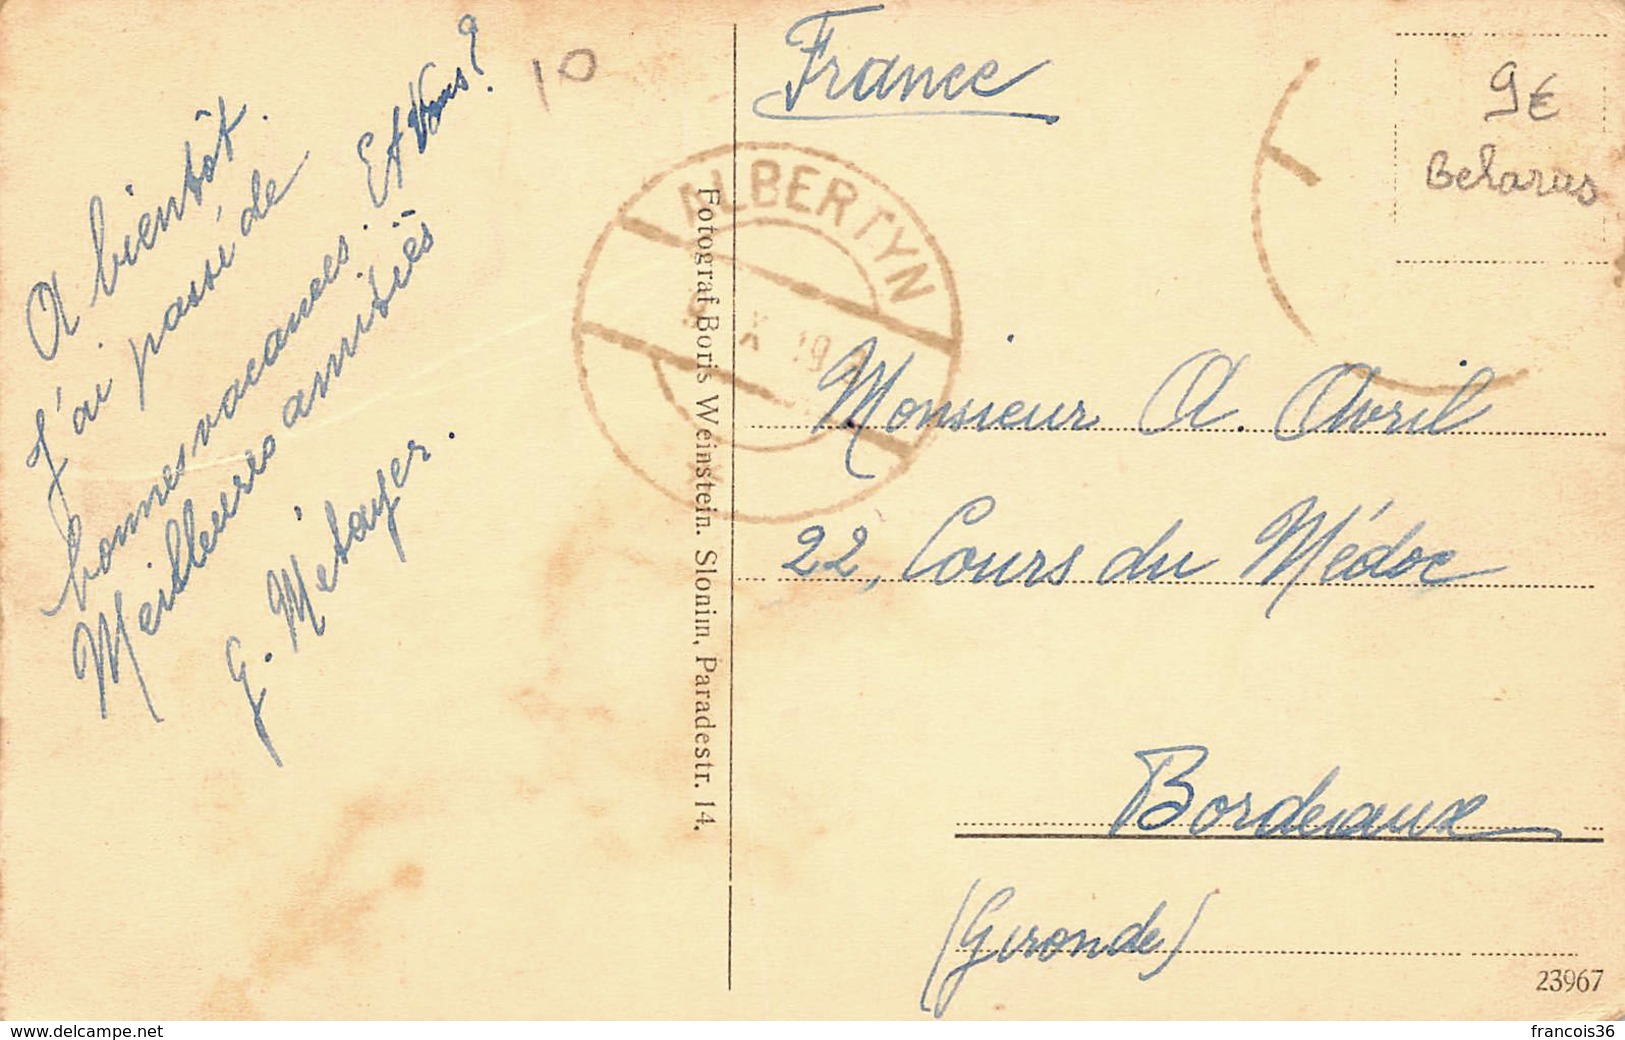 A bientôt.
J'ai passé de
bonnes vacances. Et Vous?
Meilleures amitiés
G. Métayer.
10
Fotograf Boris Weinstein. Slonim, Paradestr. 14.
France
ALBERTYN
X 19
9€
Belarus
Monsieur A. Avril
22, Cours du Médoc
Bordeaux
(Gironde)
23967
www.delcampe.net
francois36